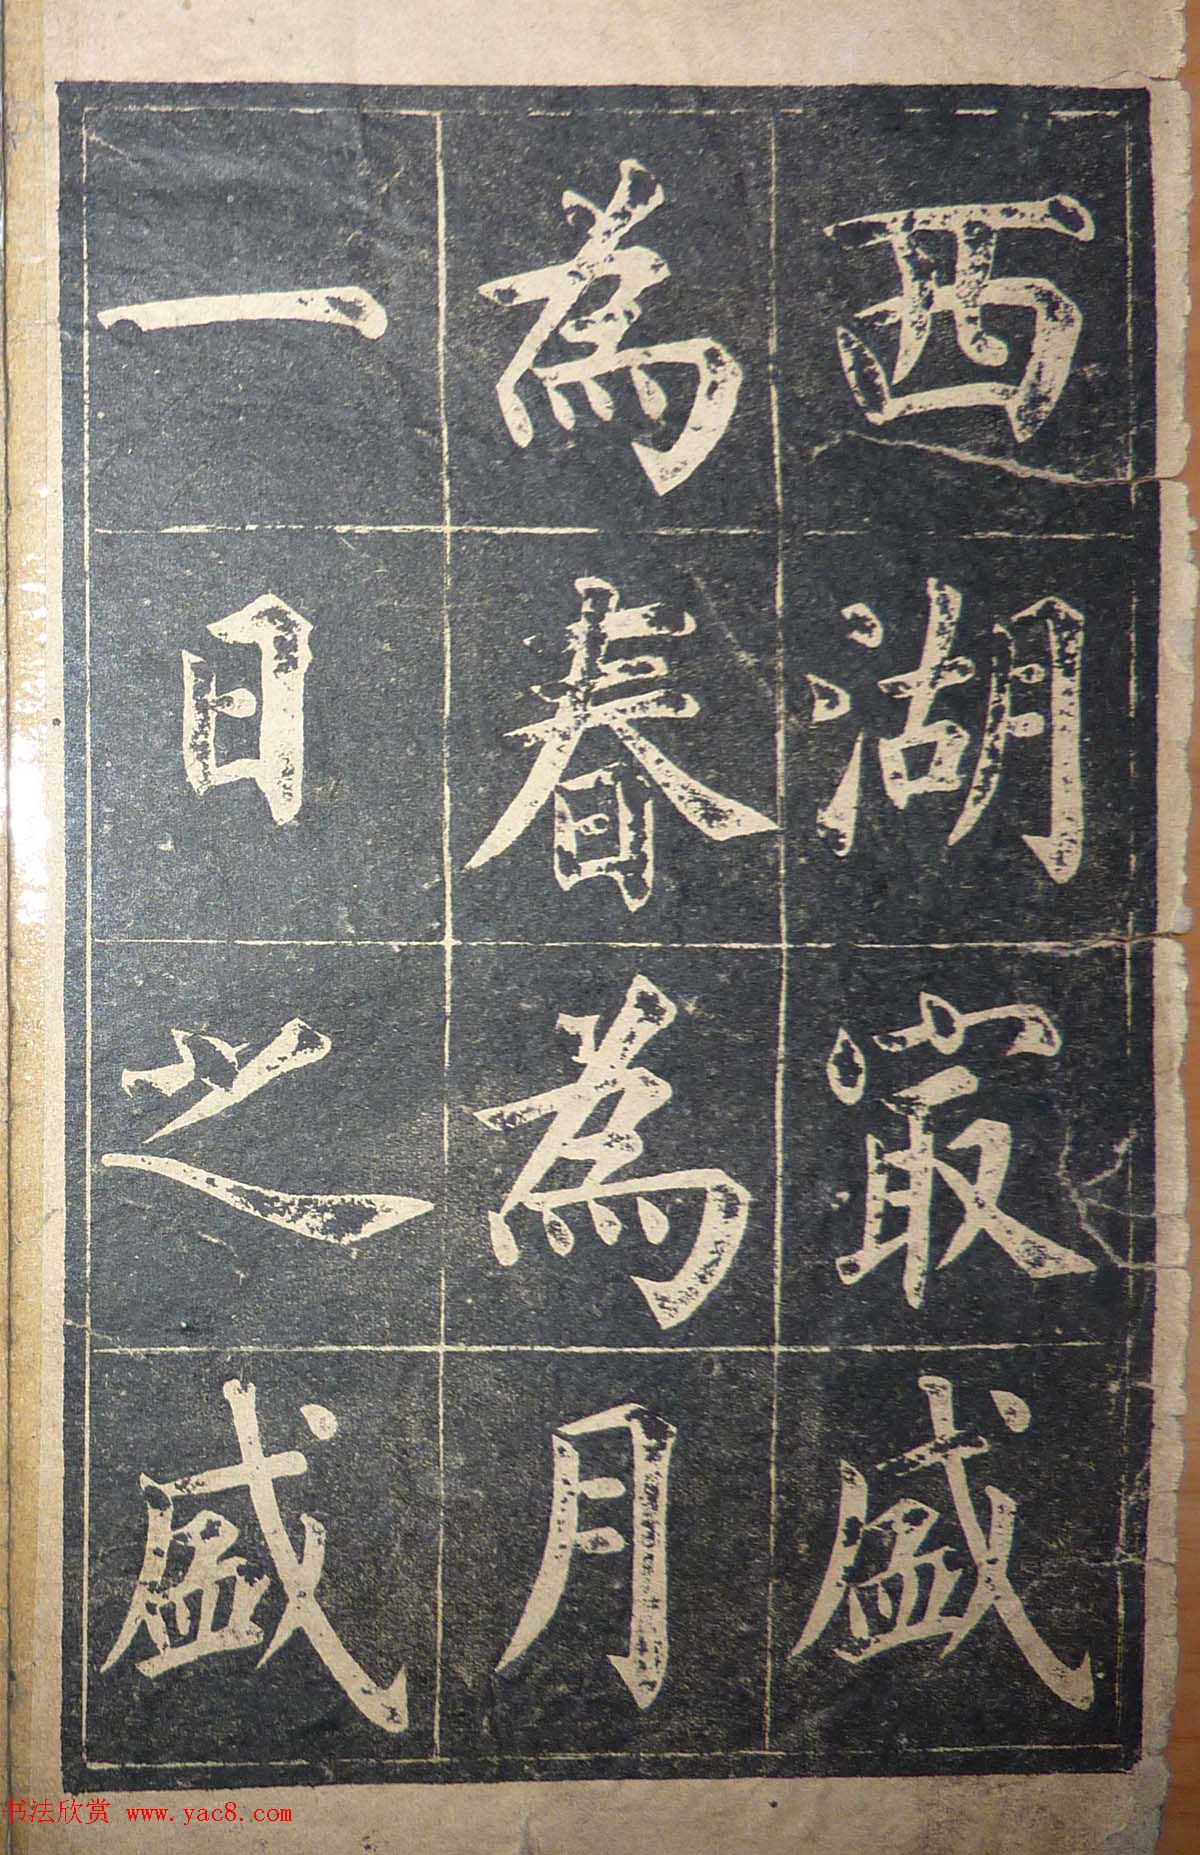 西湖㝡盛
為春為月
一日之盛
书法欣赏 www.yac8.com